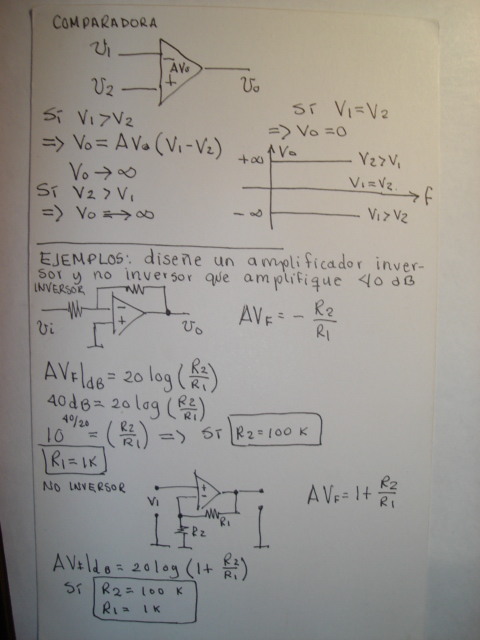 COMPARADORA
V1
V2
AVo
Vo
SI V1 > V2
=> Vo = AVo (V1 - V2)
Vo → ∞
SI V2 > V1
=> Vo => → ∞
SI V1 = V2
=> Vo = 0
+∞ Vo
V2 > V1
V1 = V2
f
-∞
V1 > V2
EJEMPLOS: diseñe un amplificador inver-
sor y no inversor que amplifique 40 dB
INVERSOR
Vi
Vo
AVF = - R2/R1
AVF|dB = 20 log (R2/R1)
40 dB = 20 log (R2/R1)
10^40/20 = (R2/R1) => SI R2 = 100 K
R1 = 1K
NO INVERSOR
Vi
R1
R2
AVF = 1 + R2/R1
AVf|dB = 20 log (1 + R2/R1)
SI R2 = 100 K
R1 = 1K